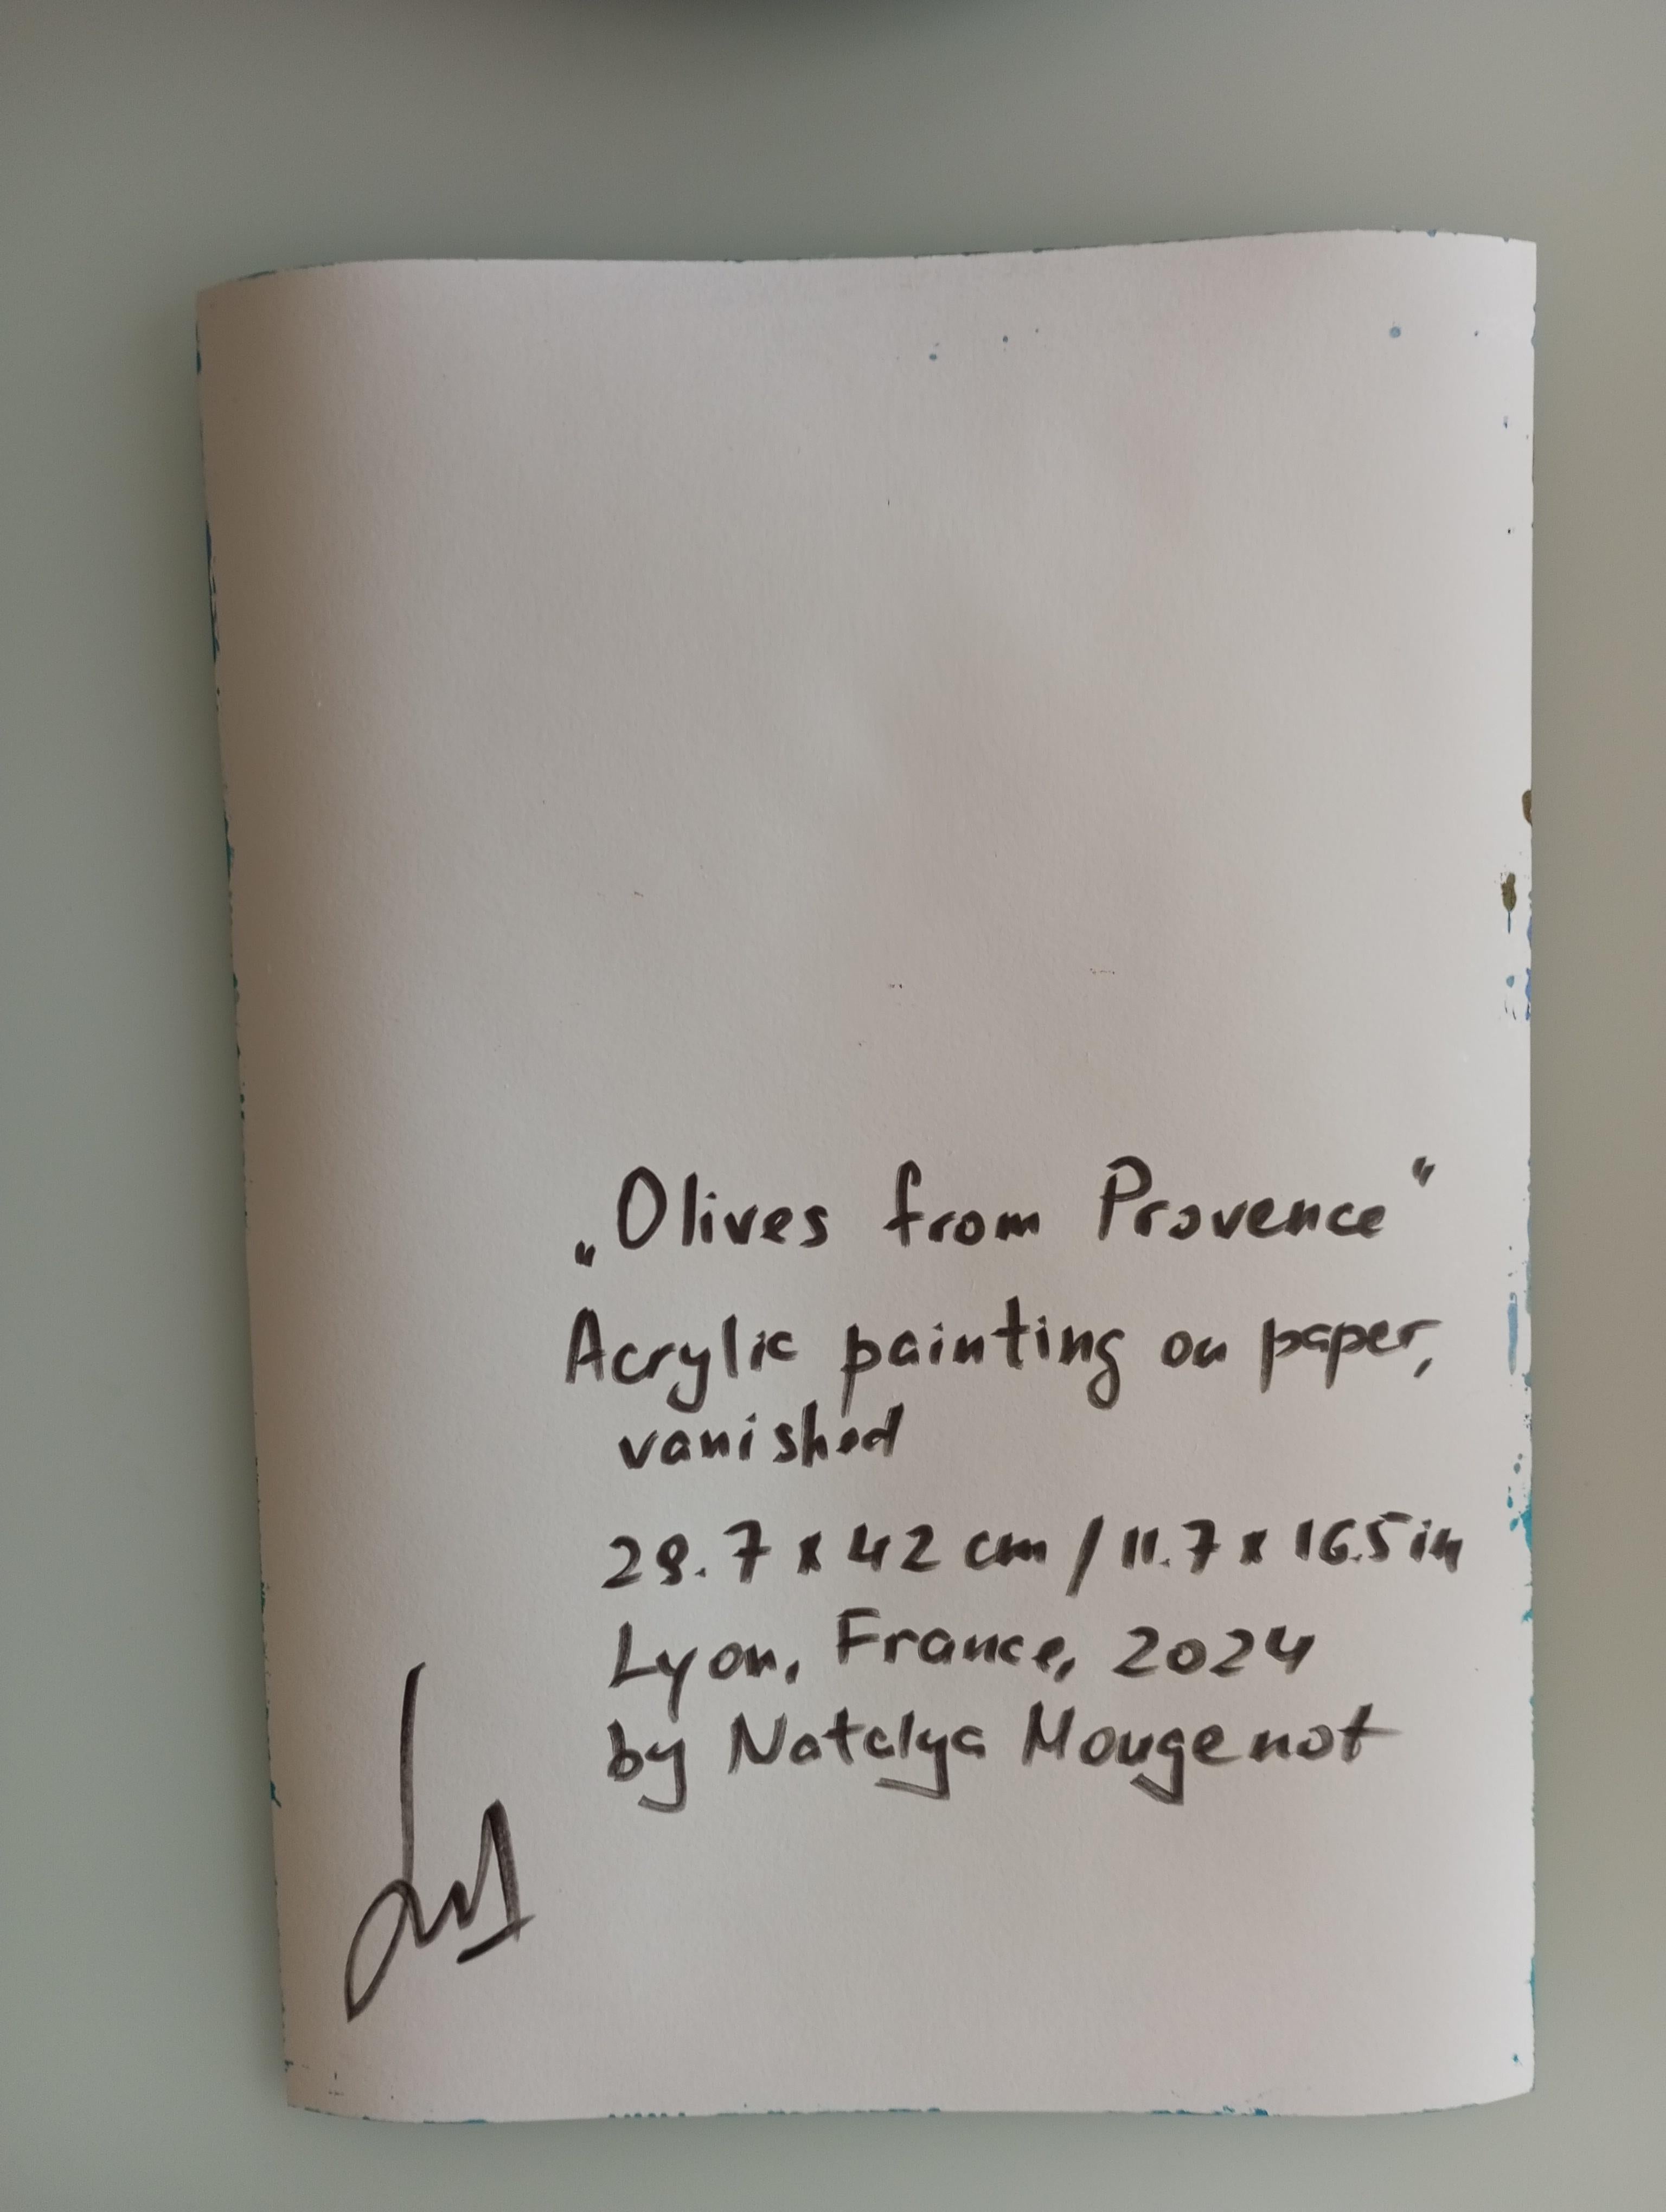 „Olives from Provence“
Acrylic painting on paper,
vanished
29.7 x 42 cm / 11.7 x 16.5 in
Lyon, France, 2024
by Natalya Mougenot